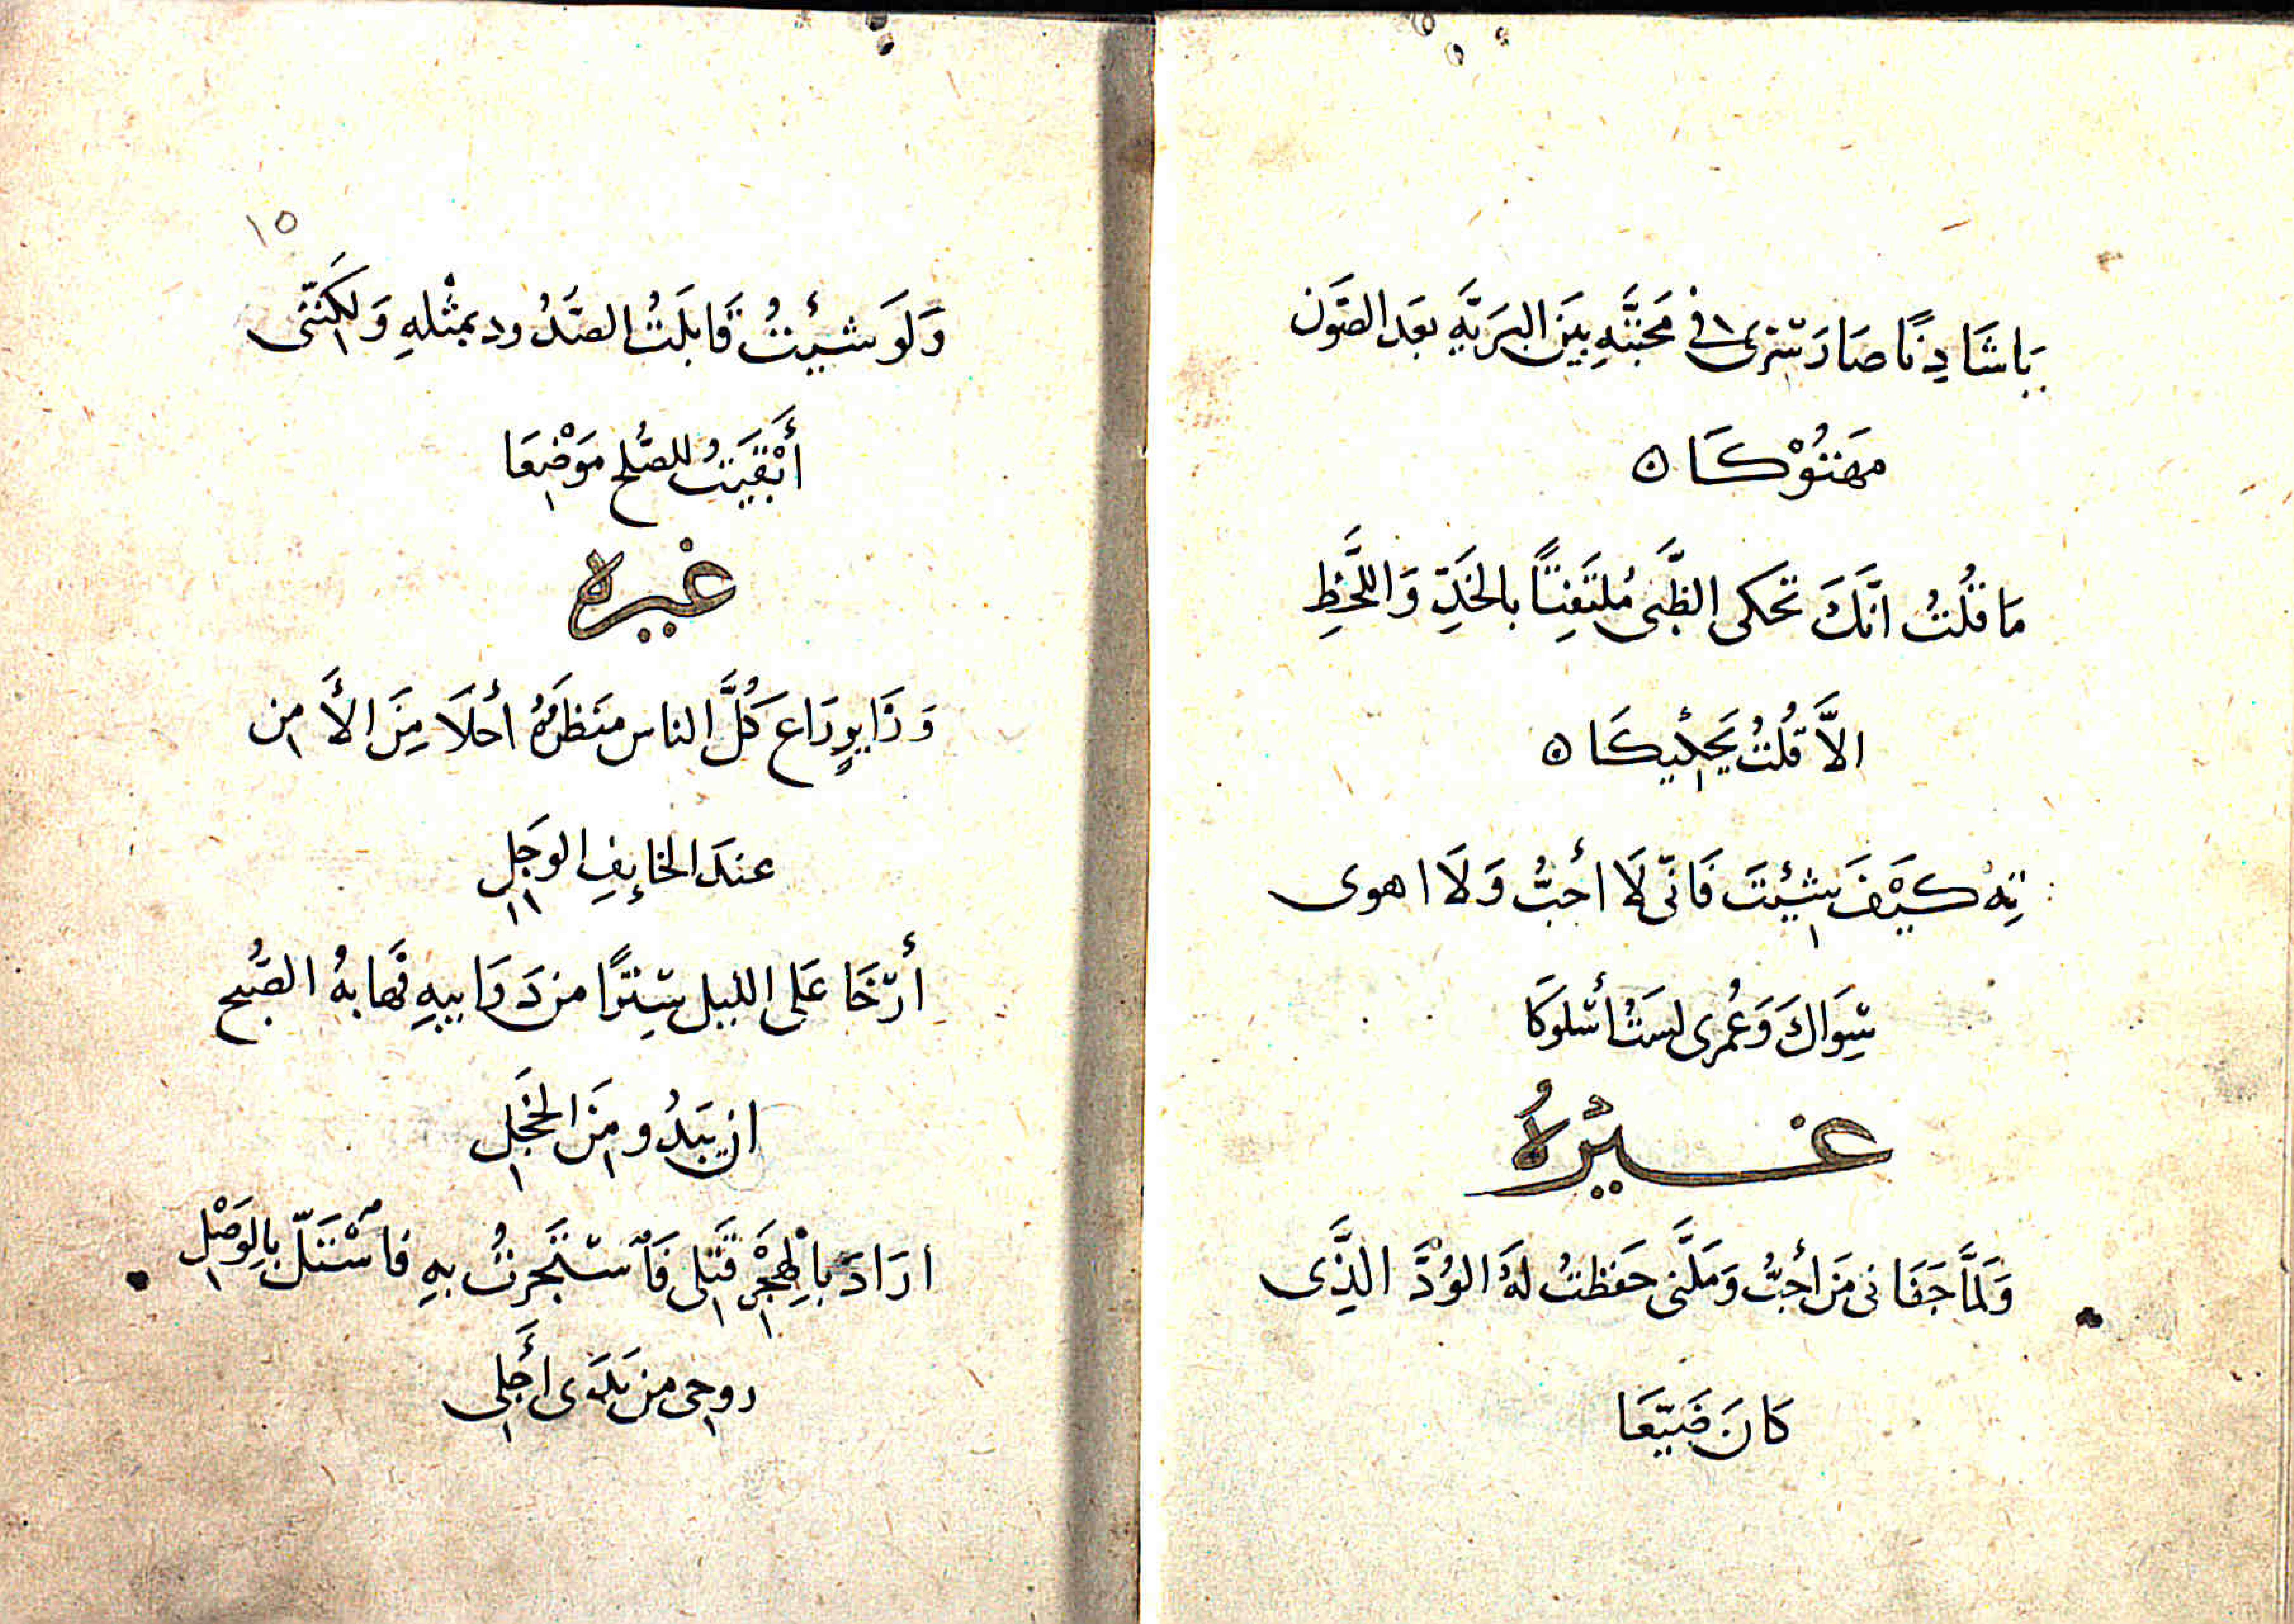 يَا شَادِنًا صَارَ سِتْرى فى مَحَبَّتِهِ بَينَ البَرَيَّهِ بَعَد الصَّوَن
مَهَتُوْكَا ه
مَا قُلتُ انَّكَ تَحَكى الظَّبَى مُلتَفِتًا بالخَدِّ وَاللَّحَظِ
الاَّ قُلتُ يَحِكْيكَا ه
تِهْ كَيْفَ شِئتَ فَانّى لَا أحُبُّ وَلَا اهوى
سِوَاكَ وَعُمرى لسَتُ أسْلوكَا
غَيْرُهُ
وَلَمَّا جَفَانى مَن أحُبُّ وَمَلَّنى حَفظتُ لهُ الوُدَّ الذَّى
كَانَ ضَيّعَا
١٥
وَلَوَ شيئتُ قَابلَتُ الصَّدُود بمثْلهِ وَلكِنَّنى
أبْقَيَتُ للصُلح مَوْضِعَا
غيره
وَزَايرٍ رَاعَ كُلَّ الناس منَظرَهُ أحَلَا مِنَ الأَمِن
عندَ الخايفِ الوَجَلِ
أرّخَا عَلى الليل سِترًا من دَوَابيهِ فَهَابهُ الصُبح
ان يَبَدُو مِنَ الخَجَلِ
ارَادَ بالهِجَرْ قَتلى فَاْسَتَجَرتُ بهِ فاسْتَلّ بالِوَصْلِ
روحى من يَدَى أجَلى